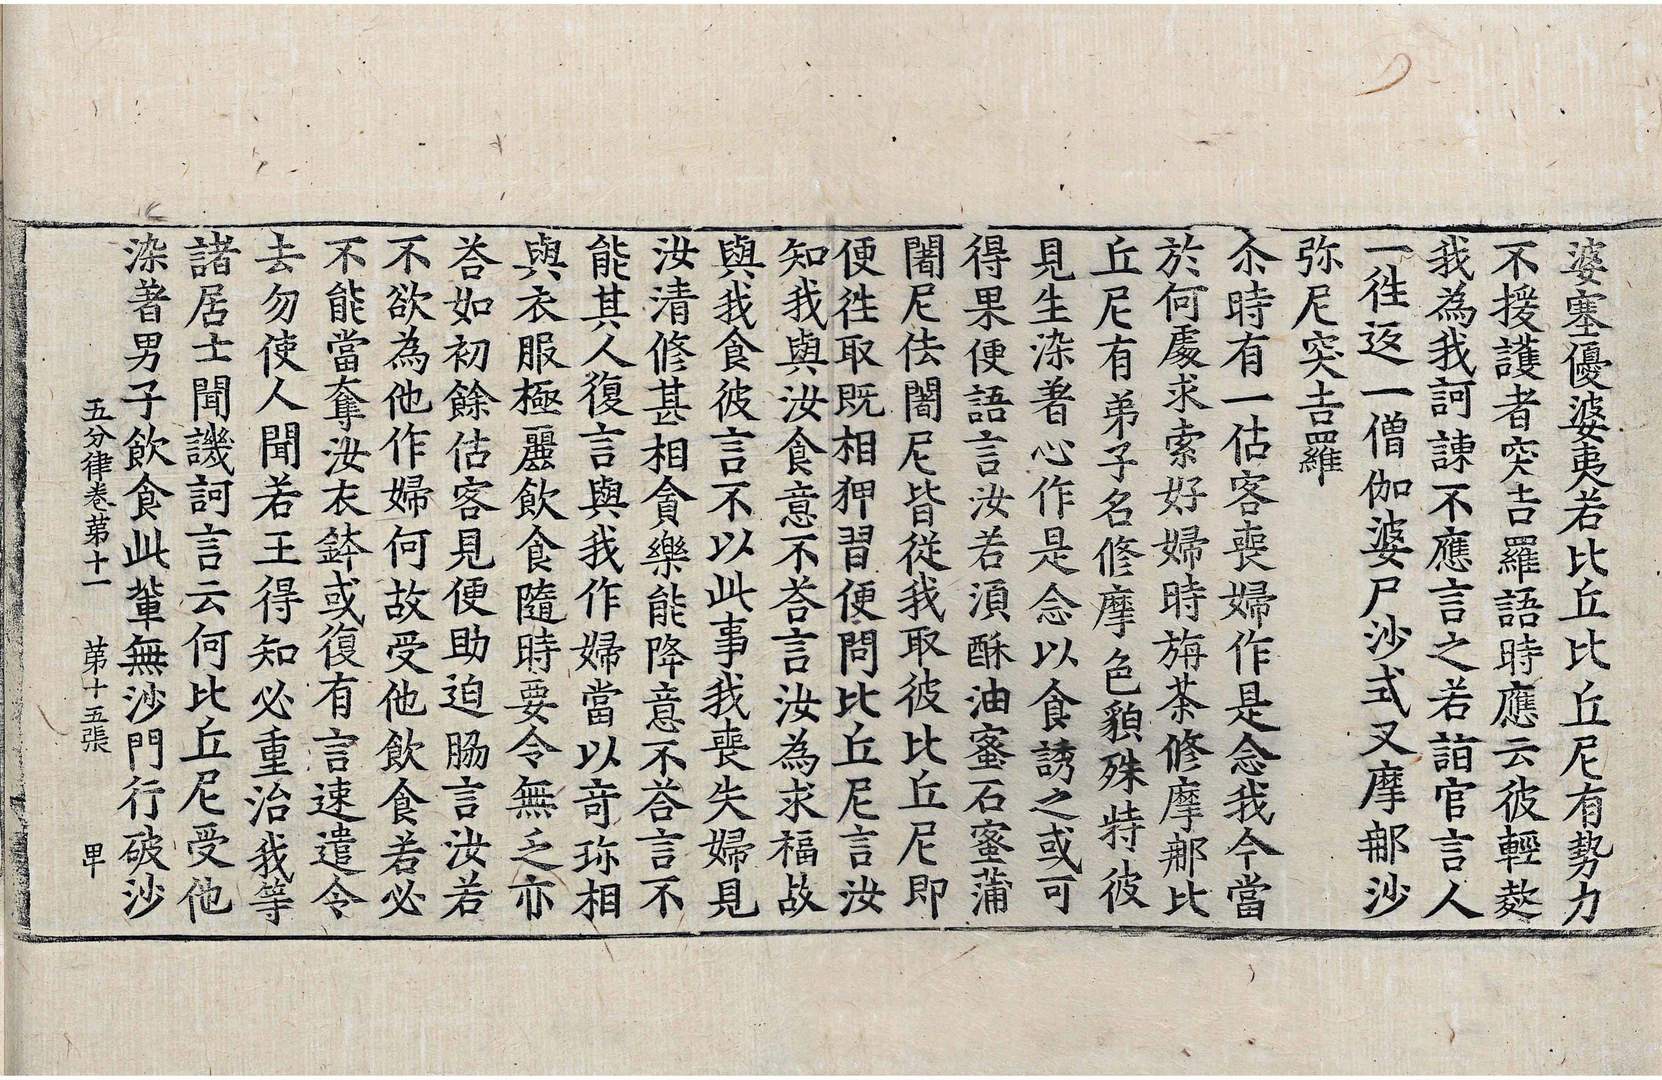 婆塞優婆夷若比丘比丘尼有勢力
不援護者突吉羅語時應云彼輕欺
我為我訶諫不應言之若詣官言人
一徃返一僧伽婆尸沙式叉摩那沙
弥尼突吉羅
尒時有一估客喪婦作是念我今當
於何處求索好婦時旃荼修摩那比
丘尼有弟子名修摩色貌殊特彼
見生染著心作是念以食誘之或可
得果便語言汝若湏酥油蜜石蜜蒲
闍尼佉闍尼皆從我取彼比丘尼即
便徃取既相狎習便問比丘尼言汝
知我與汝食意不荅言汝為求福故
與我食彼言不以此事我喪失婦見
汝清修甚相貪樂能降意不荅言不
能其人復言與我作婦當以奇珎相
與衣服極麗飲食隨時要令無乏亦
荅如初餘估客見便助迫脇言汝若
不欲為他作婦何故受他飲食若必
不能當奪汝衣鉢或復有言速遣令
去勿使人聞若王得知必重治我等
諸居士聞譏訶言云何比丘尼受他
染著男子飲食此輩無沙門行破沙
五分律卷苐十一　苐十五張　甲